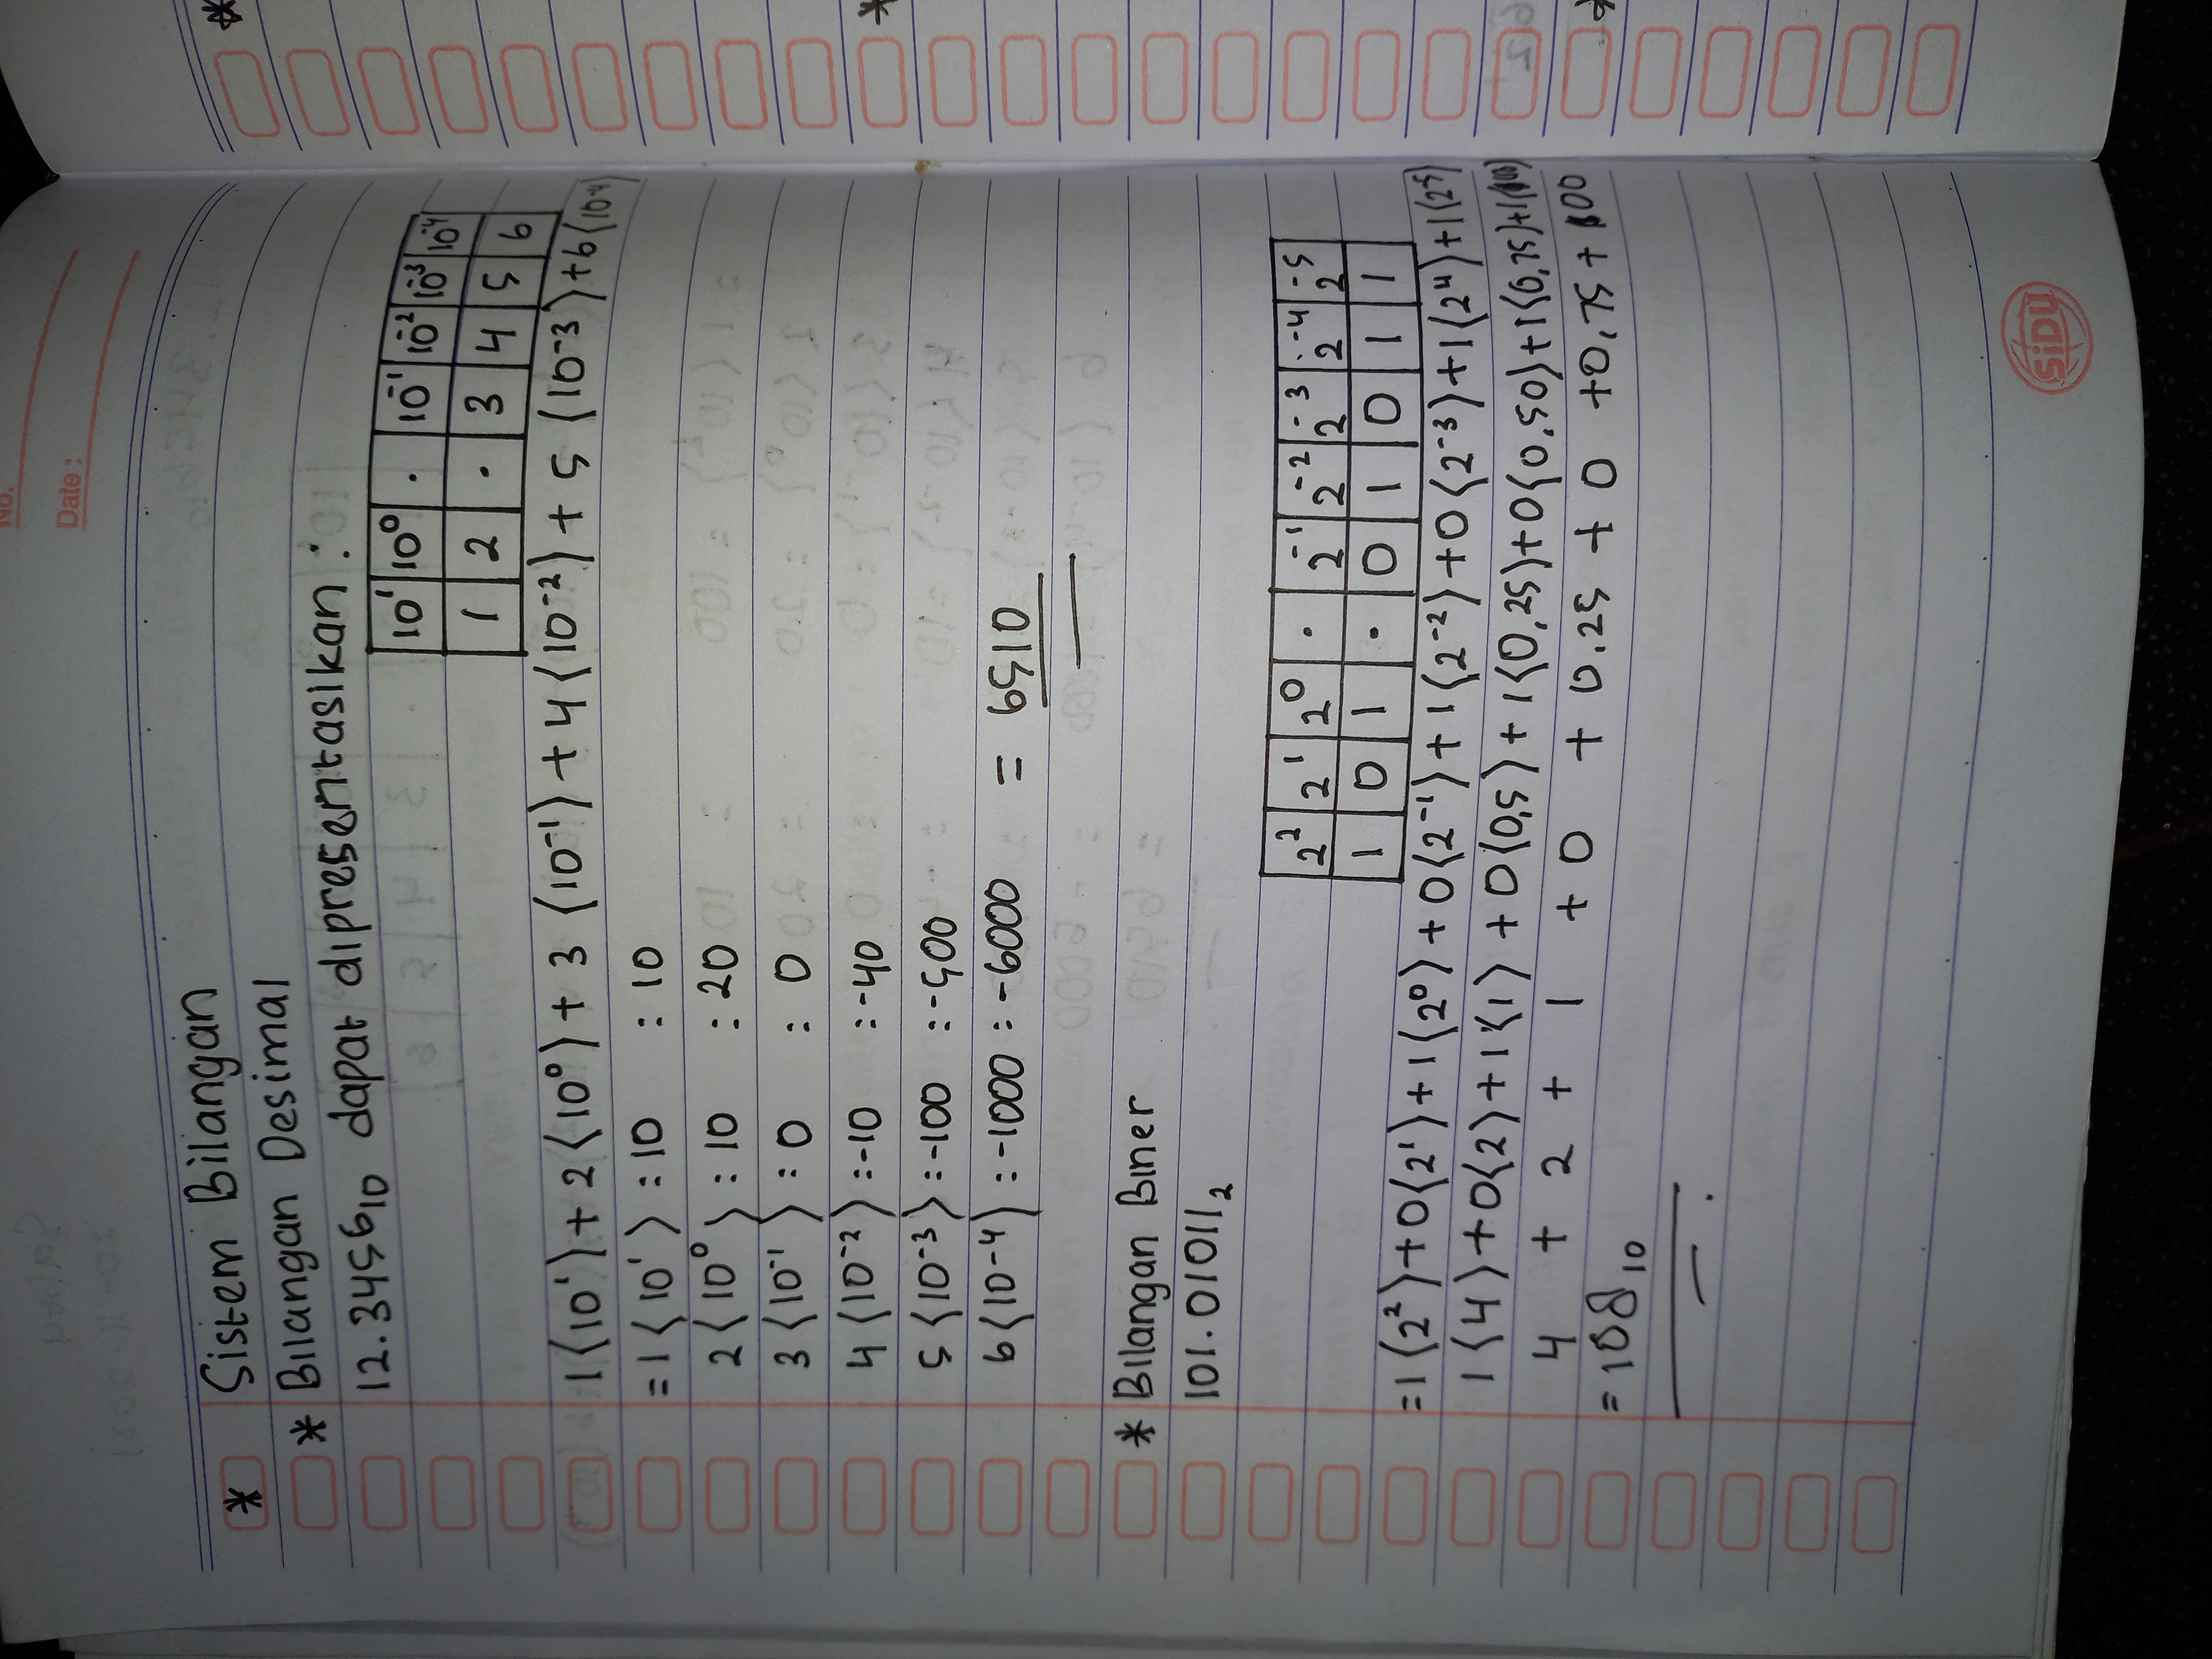 No.
Date :
* Sistem Bilangan
* Bilangan Desimal
12.3456₁₀ dapat dipresentasikan :
10¹ 10⁰ . 10⁻¹ 10⁻² 10⁻³ 10⁻⁴
1 2 . 3 4 5 6
1(10¹) + 2(10⁰) + 3(10⁻¹) + 4(10⁻²) + 5(10⁻³) + 6(10⁻⁴)
= 1(10¹) : 10 : 10
2(10⁰) : 10 : 20
3(10⁻¹) : 0 : 0
4(10⁻²) : -10 : -40
5(10⁻³) : -100 : -500
6(10-4) : -1000 : -6000 = 6510
* Bilangan Biner
101.01011₂
2² 2¹ 2⁰ . 2⁻¹ 2⁻² 2⁻³ 2⁻⁴ 2⁻⁵
1 0 1 . 0 1 0 1 1
= 1(2²) + 0(2¹) + 1(2⁰) + 0(2⁻¹) + 1(2⁻²) + 0(2⁻³) + 1(2⁴) + 1(2⁻⁵)
1(4) + 0(2) + 1(1) + 0(0,5) + 1(0,25) + 0(0,50) + 1(0,75) + 1(
4 + 2 + 1 + 0 + 0.25 + 0 + 0,75 + 100
= 108₁₀
SiDU